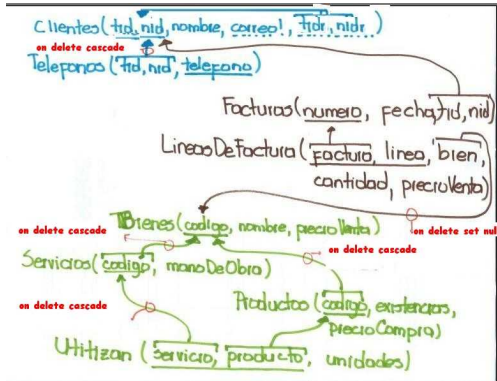 Clientes(tid,nid,nombre, correo!, tidr, nidr)
on delete cascade
Telefonos(tid,nid, telefono)
Facturas(numero, fecha,tid,nid)
LineasDeFactura(factura, linea, bien,
cantidad, precioVenta)
on delete cascade
Bienes(codigo, nombre, precioVenta)
on delete set nul
on delete cascade
Servicios(codigo, manoDeObra)
on delete cascade
Productos(codigo, existencias,
precioCompra)
Utilizan (servicio, producto, unidades)